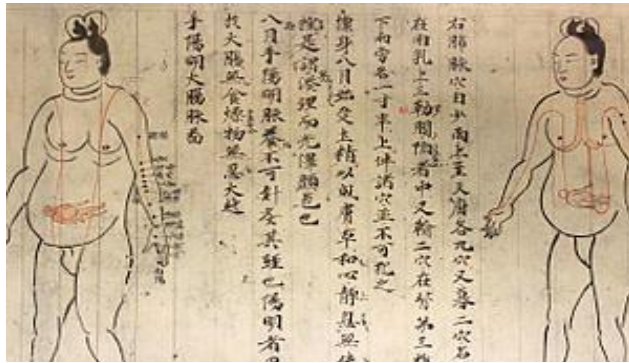 右肺脉穴自少商上至天府各九穴又募二穴名
在兩乳上三肋間陷者中又輸二穴在脊第三椎
下兩旁各一寸半上件諸穴並不可犯之
懷身八月始受土精以成膚革和心靜息無使
極是謂湊理而光澤顏色也
八月手陽明脉養不可針灸其經也陽明者
大腸無食燥物無忍大起
手陽明大腸脉圖